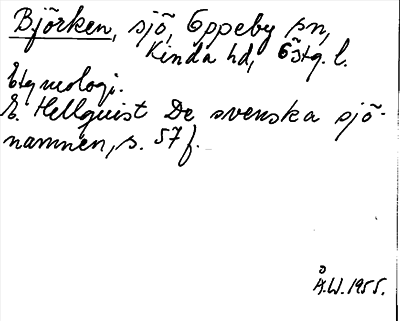 Björken, sjö, Oppeby sn,
Kinda hd, Östg. l.
Etymologi.
E. Hellquist De svenska sjö-
namnen, s. 57 f.
Å.W. 1955.